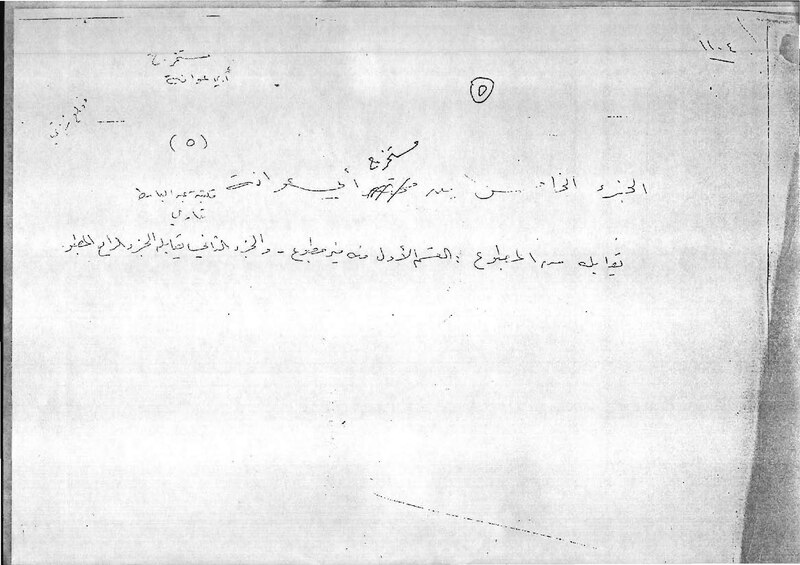 ١١٠٤
مستخرج
أبي عوانة
٥
(٥)
مستخرج
الجزء الخامس من أبي عوانة
مكتبة عبد الباسط
يقابله من المطبوع : القسم الأول منه غير مطبوع - والجزء الثاني يقابله الجزء الرابع المطبوع